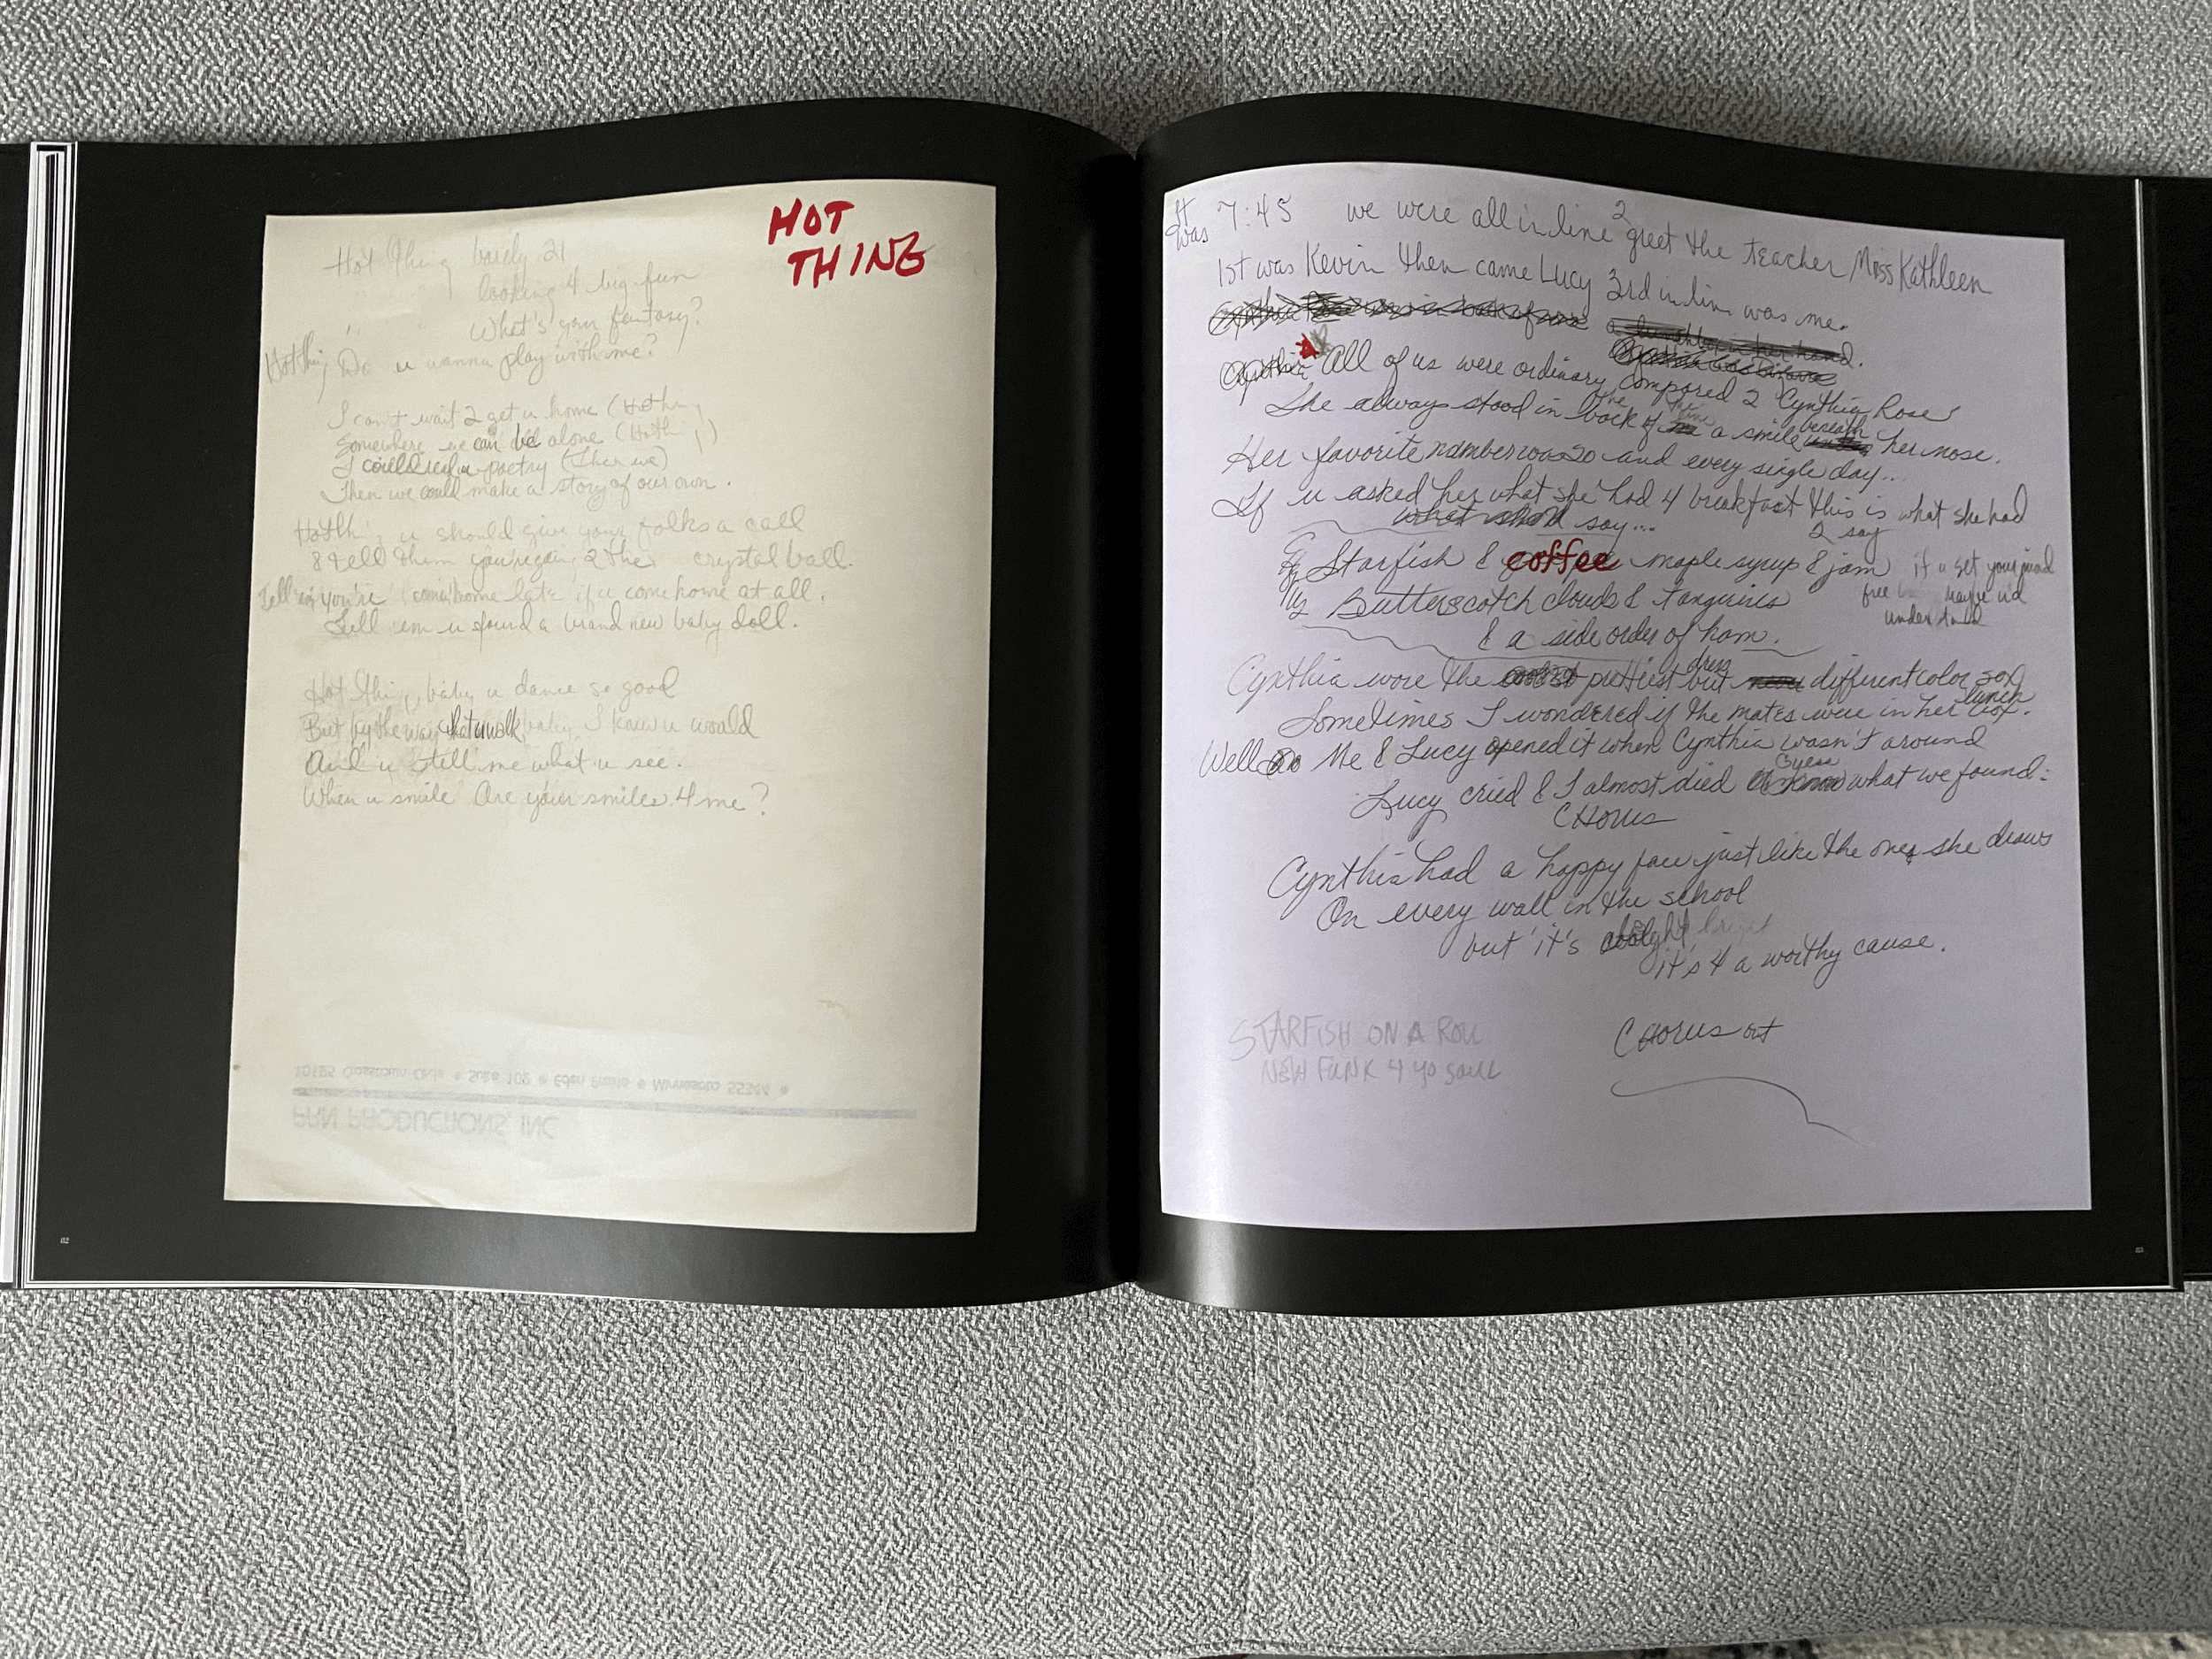 HOT
THING
Hot thing barely 21
looking 4 big fun
What's your fantasy?
Hot thing Do u wanna play with me?
I can't wait 2 get u home (Hot thing)
Somewhere we can be alone (Hot thing)
I could read u poetry (Then we)
Then we could make a story of our own.
Hot thing u should give your folks a call
& tell them you're going 2 the crystal ball.
Tell 'em you're comin' home late if u come home at all.
Tell 'em u found a brand new baby doll.
Hot thing, baby u dance so good
But by the way that u walk, baby, I knew u would
And u tell me what u see.
When u smile Are your smiles 4 me?
10185 Crosstown Circle • Suite 102 • Eden Prairie • Minnesota 55344 •
PRN PRODUCTIONS, INC
112
It was 7:45 we were all in line 2 greet the teacher Miss Kathleen
1st was Kevin then came Lucy 3rd in line was me.
All of us were ordinary compared 2 Cynthia Rose
She always stood in the back of the line a smile beneath her nose.
Her favorite number was 20 and every single day...
If u asked her what she had 4 breakfast this is what she had 2 say
say...
Starfish & coffee maple syrup & jam if u set your mind
Butterscotch clouds & tangerines free maybe u'd
& a side order of ham. understand
Cynthia wore the prettiest dress but different color sox
Sometimes I wondered if the mates were in her lunch box.
Well Me & Lucy opened it when Cynthia wasn't around
Lucy cried & I almost died Guess what we found:
CHORUS
Cynthia had a happy face just like the ones she draws
On every wall in the school
but it's alright
it's 4 a worthy cause.
STARFISH ON A ROLL
NEW FUNK 4 YO SOUL
CHORUS out